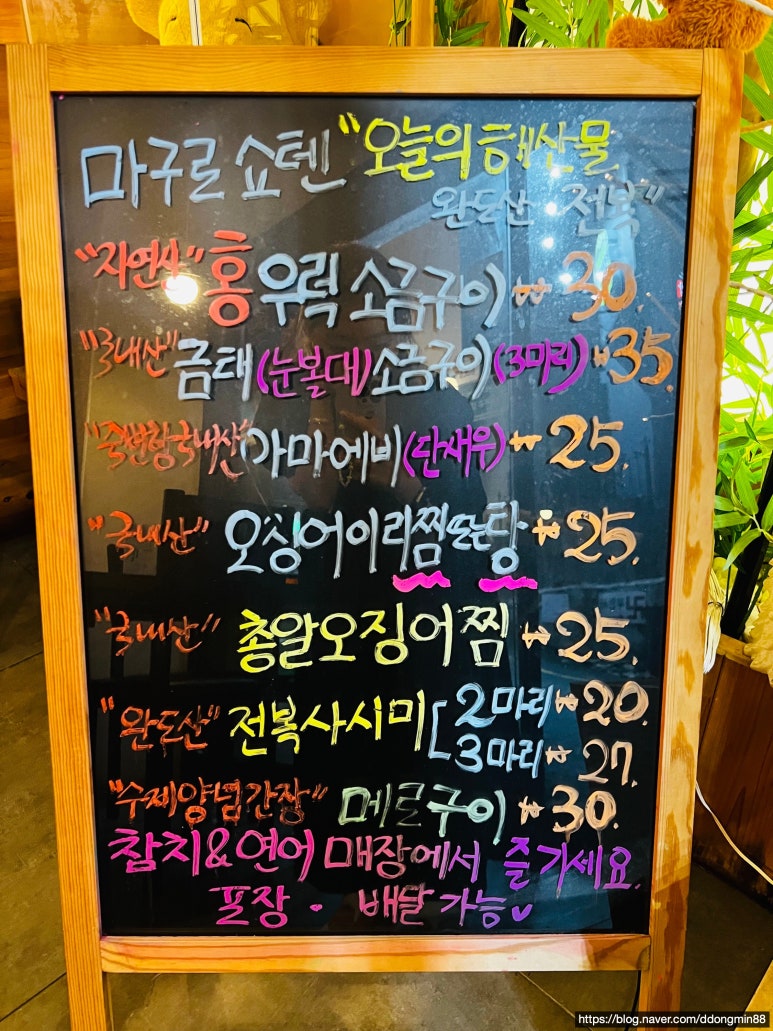 마구로 쇼텐 "오늘의 해산물
완도산 전복"
"자연산" 홍우럭 소금구이 ₩ 30.
"국내산" 금태(눈볼대)소금구이(3마리) ₩35.
국내산" 아마에비(단새우) ₩ 25.
"국내산" 오징어이리찜또는탕 ₩25.
"국내산" 총알오징어찜 ₩25.
"완도산" 전복사시미[ 2마리 ₩20.
3마리 ₩ 27.
"수제양념간장" 메로구이 ₩30.
참치&연어 매장에서 즐기세요.
포장 · 배달 가능
https://blog.naver.com/ddongmin88